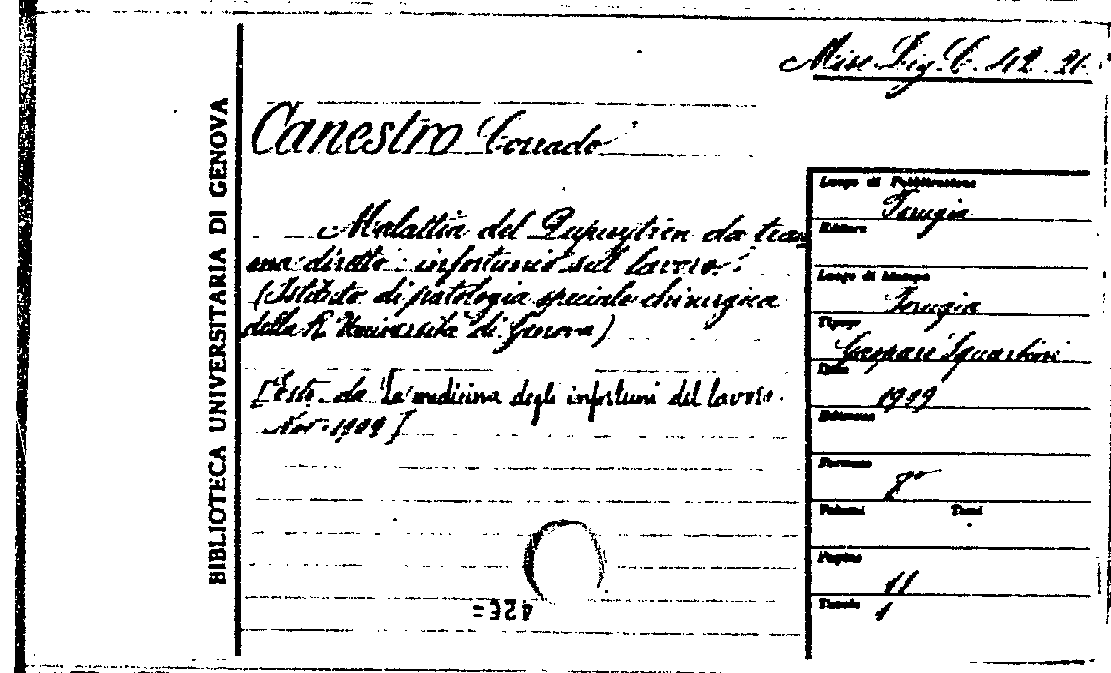 Misc. Lig. C. 42. 21.
BIBLIOTECA UNIVERSITARIA DI GENOVA
Canestro Corrado
Malattia del Dupuytren da trau
ma diretto: infortunio sul lavoro.
(Istituto di patologia speciale chirurgica
della R. Università di Genova)
[Estr. da La medicina degli infortuni del lavoro.
Nov. 1909]
Luogo di Pubblicazione
Perugia
Editore
Luogo di Stampa
Perugia
Tipogr.
Gaspare Squartini
Data
1909
Edizione
Formato
8°
Volumi Tomi
Pagine
11
Tavole
1